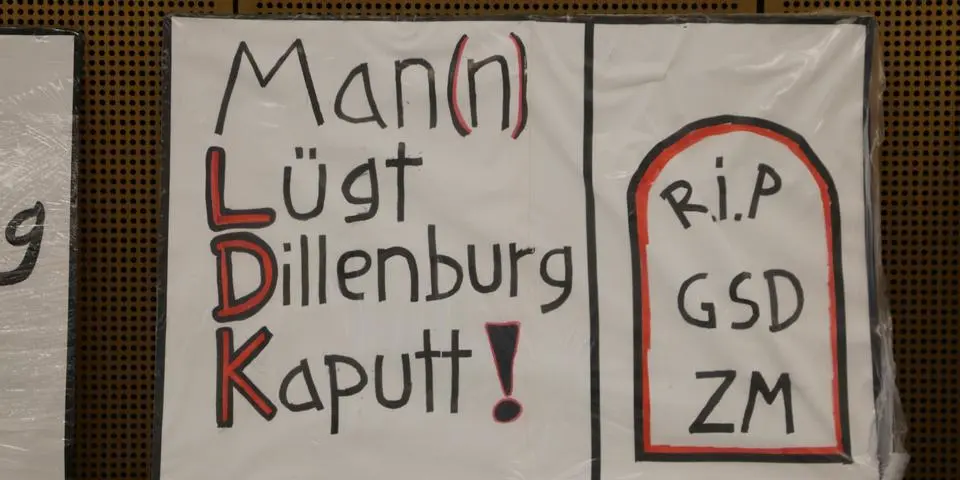 Man(n)
Lügt
Dillenburg
Kaputt!
R.i.P
GSD
ZM
g